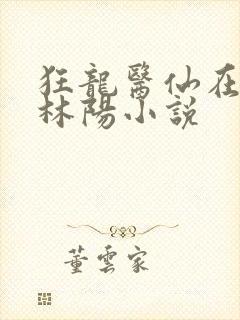 狂龍醫仙在
林陽小説
董雲家